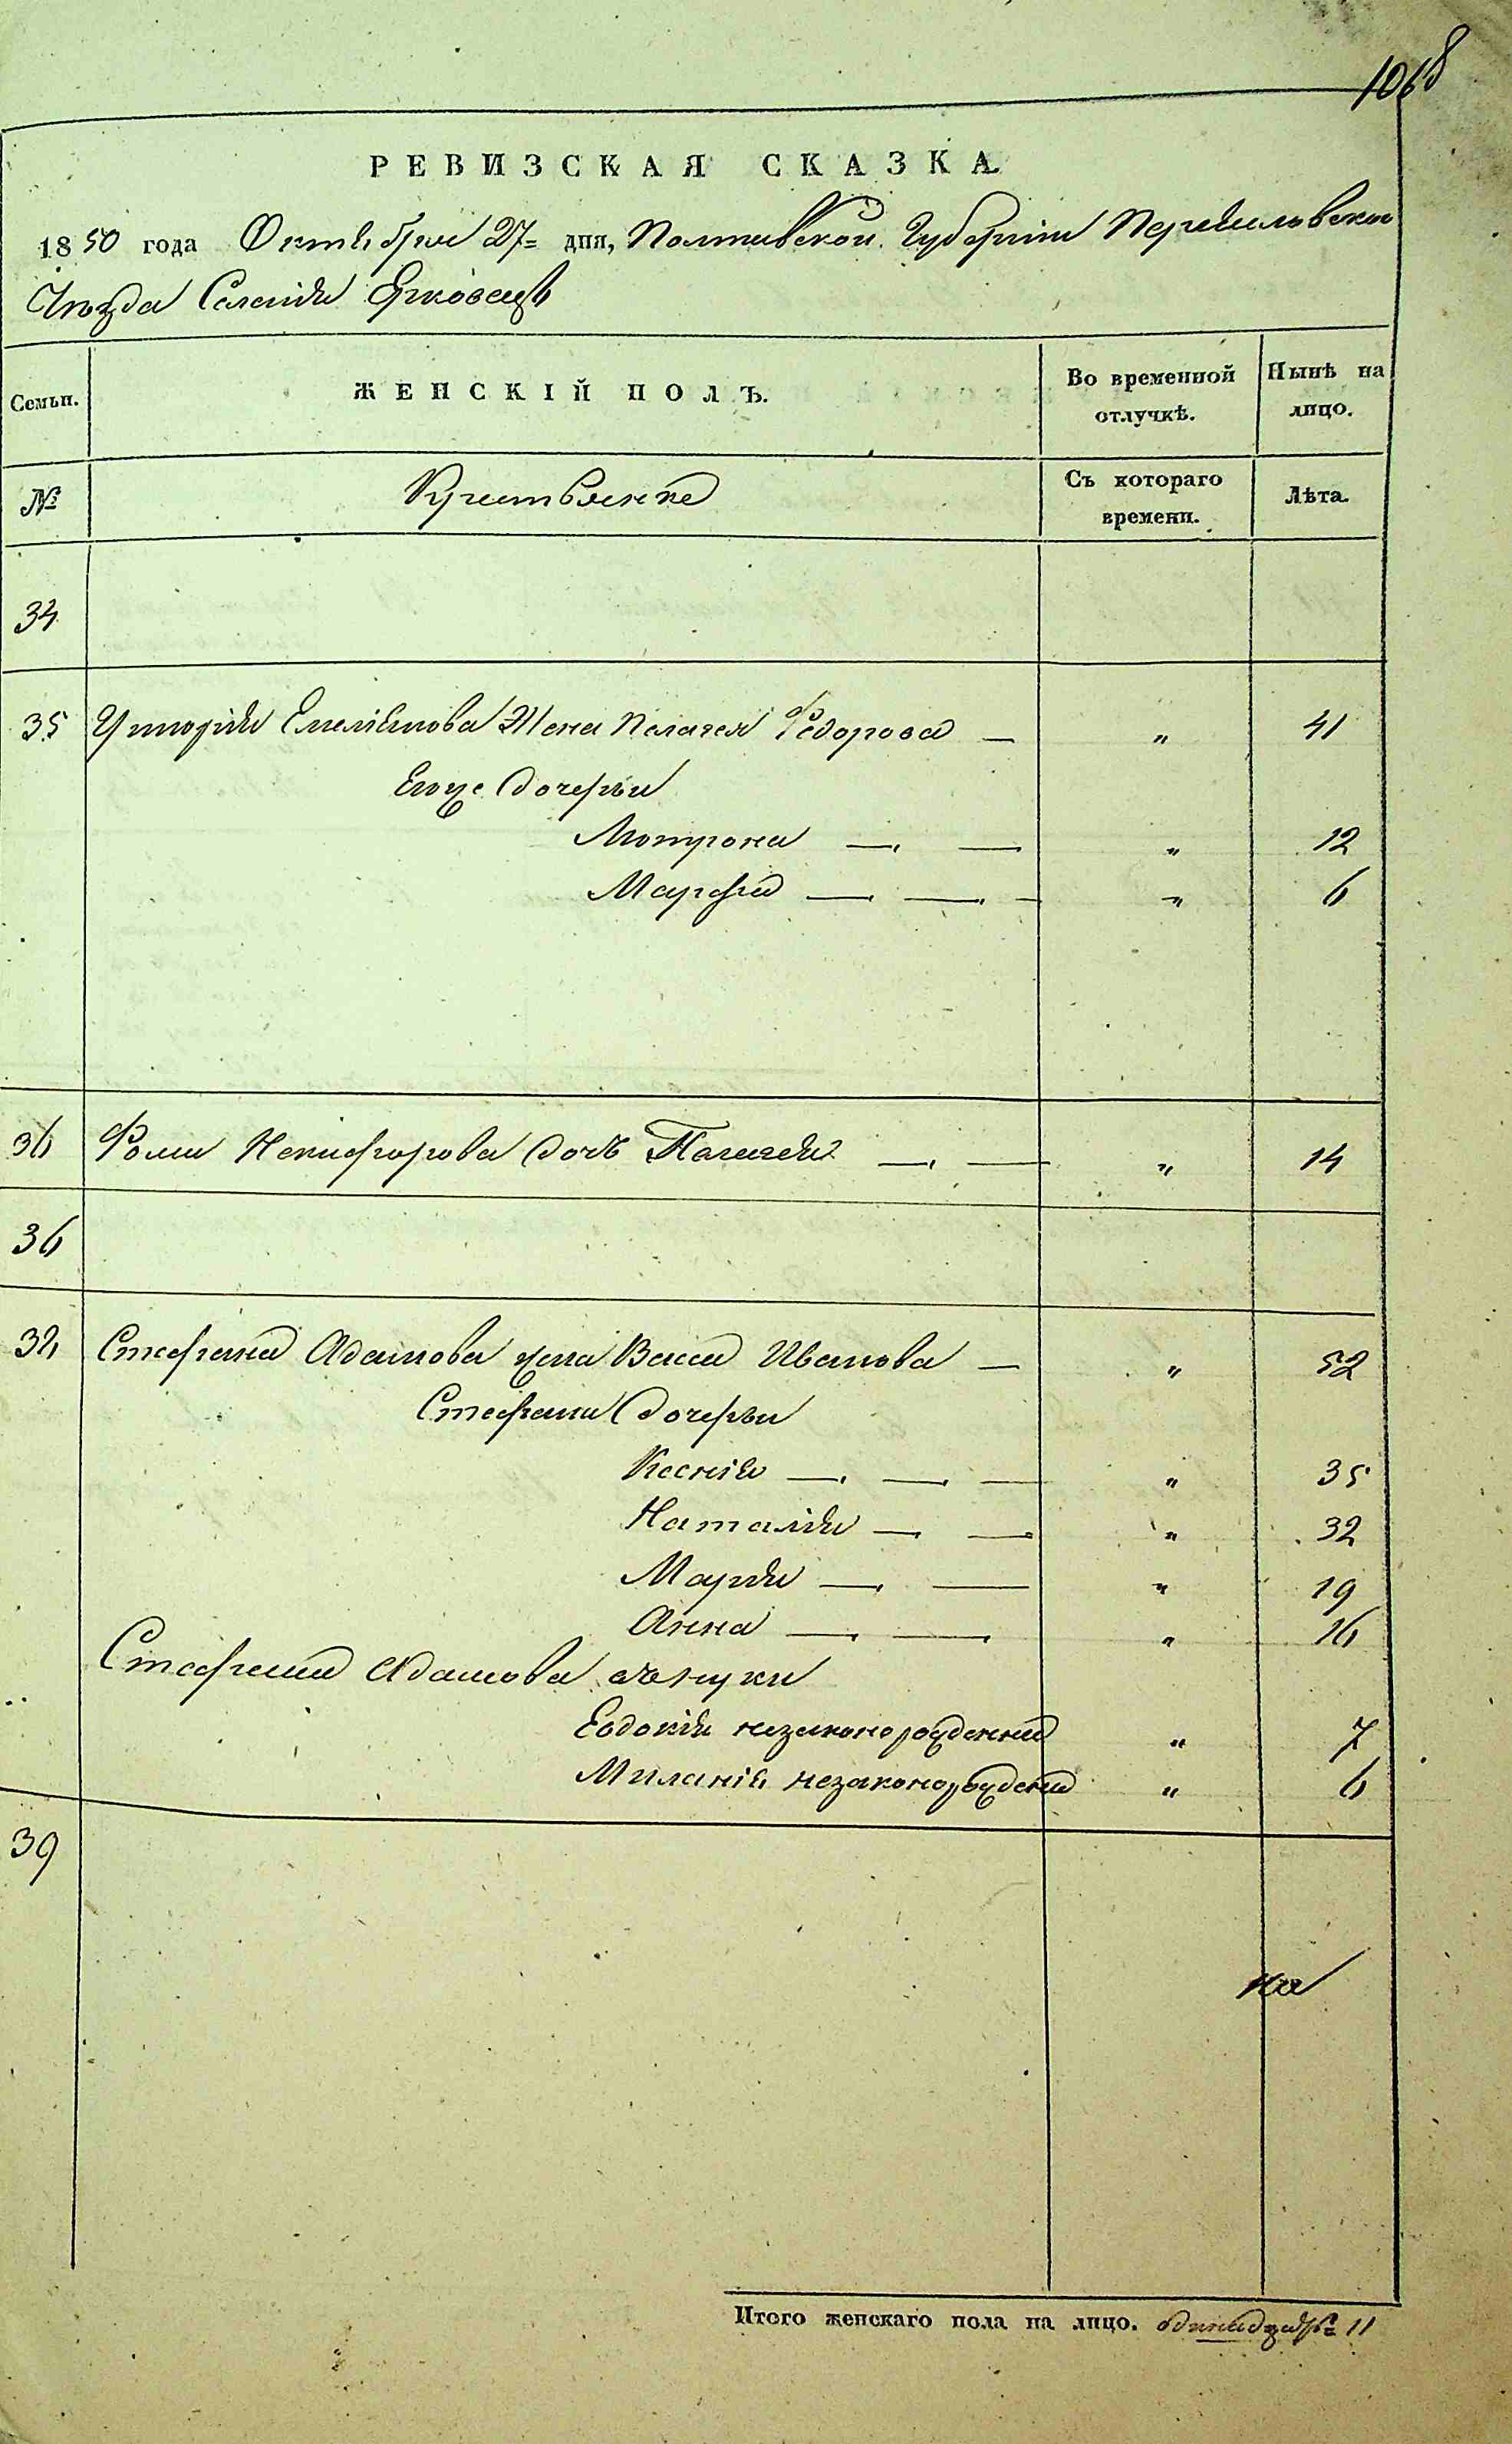 1068
РЕВИЗСКАЯ СКАЗКА
1850 года Октября 27 дня, Полтавской Губернии Переяславского
Уѣзда Селенія Ерковецъ
Семьи.
ЖЕНСКІЙ ПОЛЪ.
Во временной отлучкѣ.
Нынѣ на лицо.
№
Съ котораго времени.
Лѣта.
34
35 Григорія Емеліянова Жена Пелагея Федорова — „ 41
Егоже Дочери
Мотрона — — „ 12
Марфа — — — „ 6
36 Фомы Никифорова Дочь Пелагея — — „ 14
36
Стефана Адамова жена Васса Иванова — „ 52
Стефана Дочери
Ксенія — — — „ 35
Наталія — — „ 32
Марія — — „ 19
Анна — — „ 16
Стефана Адамова внуки
Евдокія незаконорожденна „ 7
Миланія незаконорожденна „ 6
39
на
Итого женскаго пола на лицо. одинадцать 11